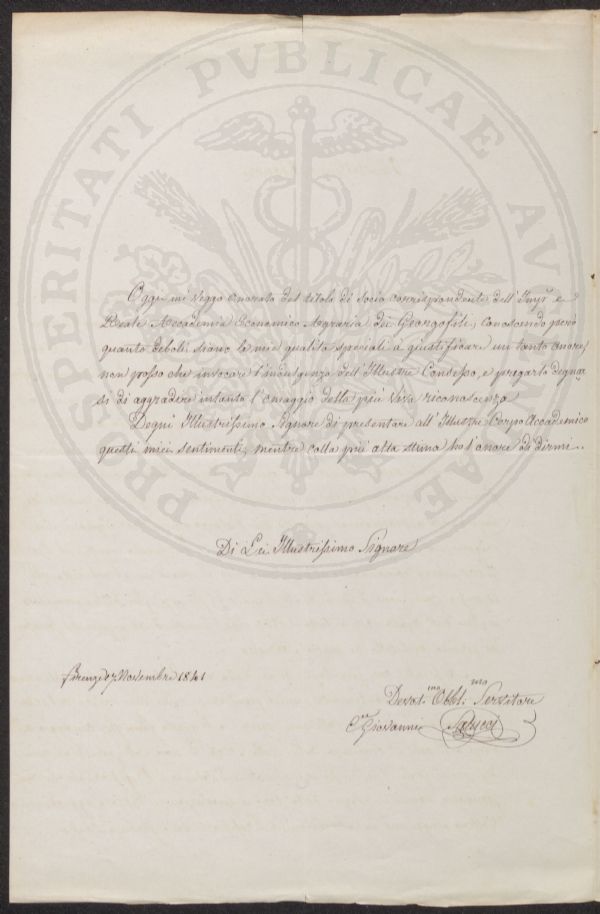 PROSPERITATI PVBLICAE AVGENDAE
Oggi mi veggo onorato del titolo di Socio corrispondente dell'Imp.e e
Reale Accademia Economico Agraria dei Georgofili, conoscendo però
quanto deboli siano le mie qualità speciali a giustificare un tanto onore,
non posso che invocare l'indulgenza dell'Illustre Consesso, e pregarlo degnar
si di aggradire intanto l'omaggio della più viva riconoscenza
Degni Illustrissimo Signore di presentare all'Illustre Corpo Accademico
questi miei sentimenti, mentre colla più alta stima ho l'onore di dirmi..
Di Lei Illustrissimo Signore
Firenze 7 Novembre 1841
Devot.mo Obbl.mo Servitore
Giovanni Salucci